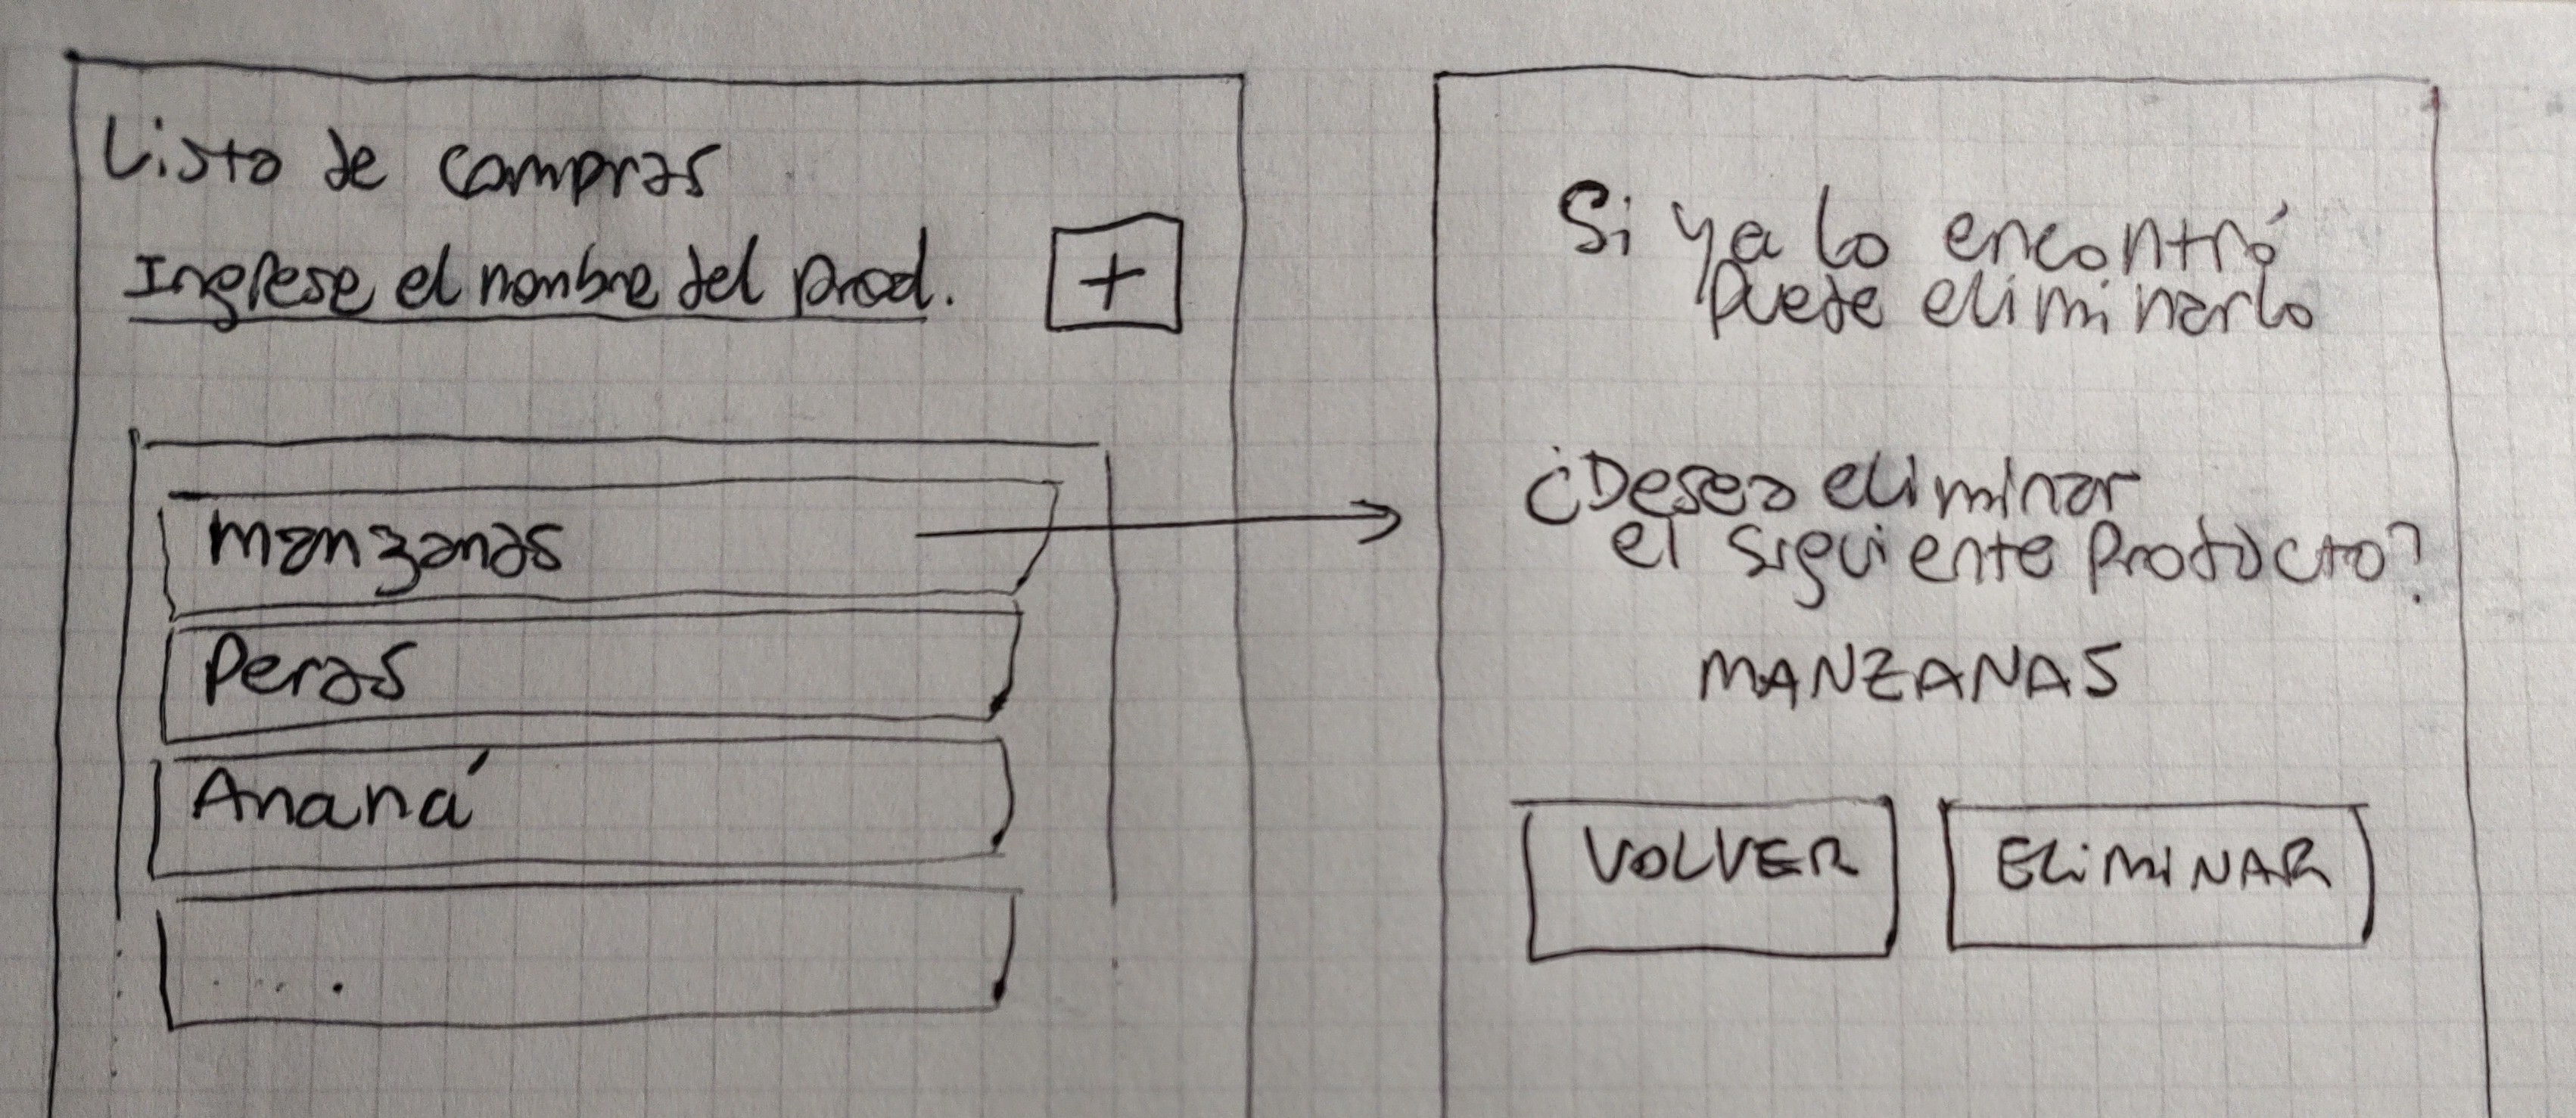 Lista de compras
Ingrese el nombre del prod.
+
manzanas
Peras
Ananá
....
Si ya lo encontró
Puede eliminarlo
¿Desea eliminar
el siguiente Producto?
MANZANAS
VOLVER
ELIMINAR